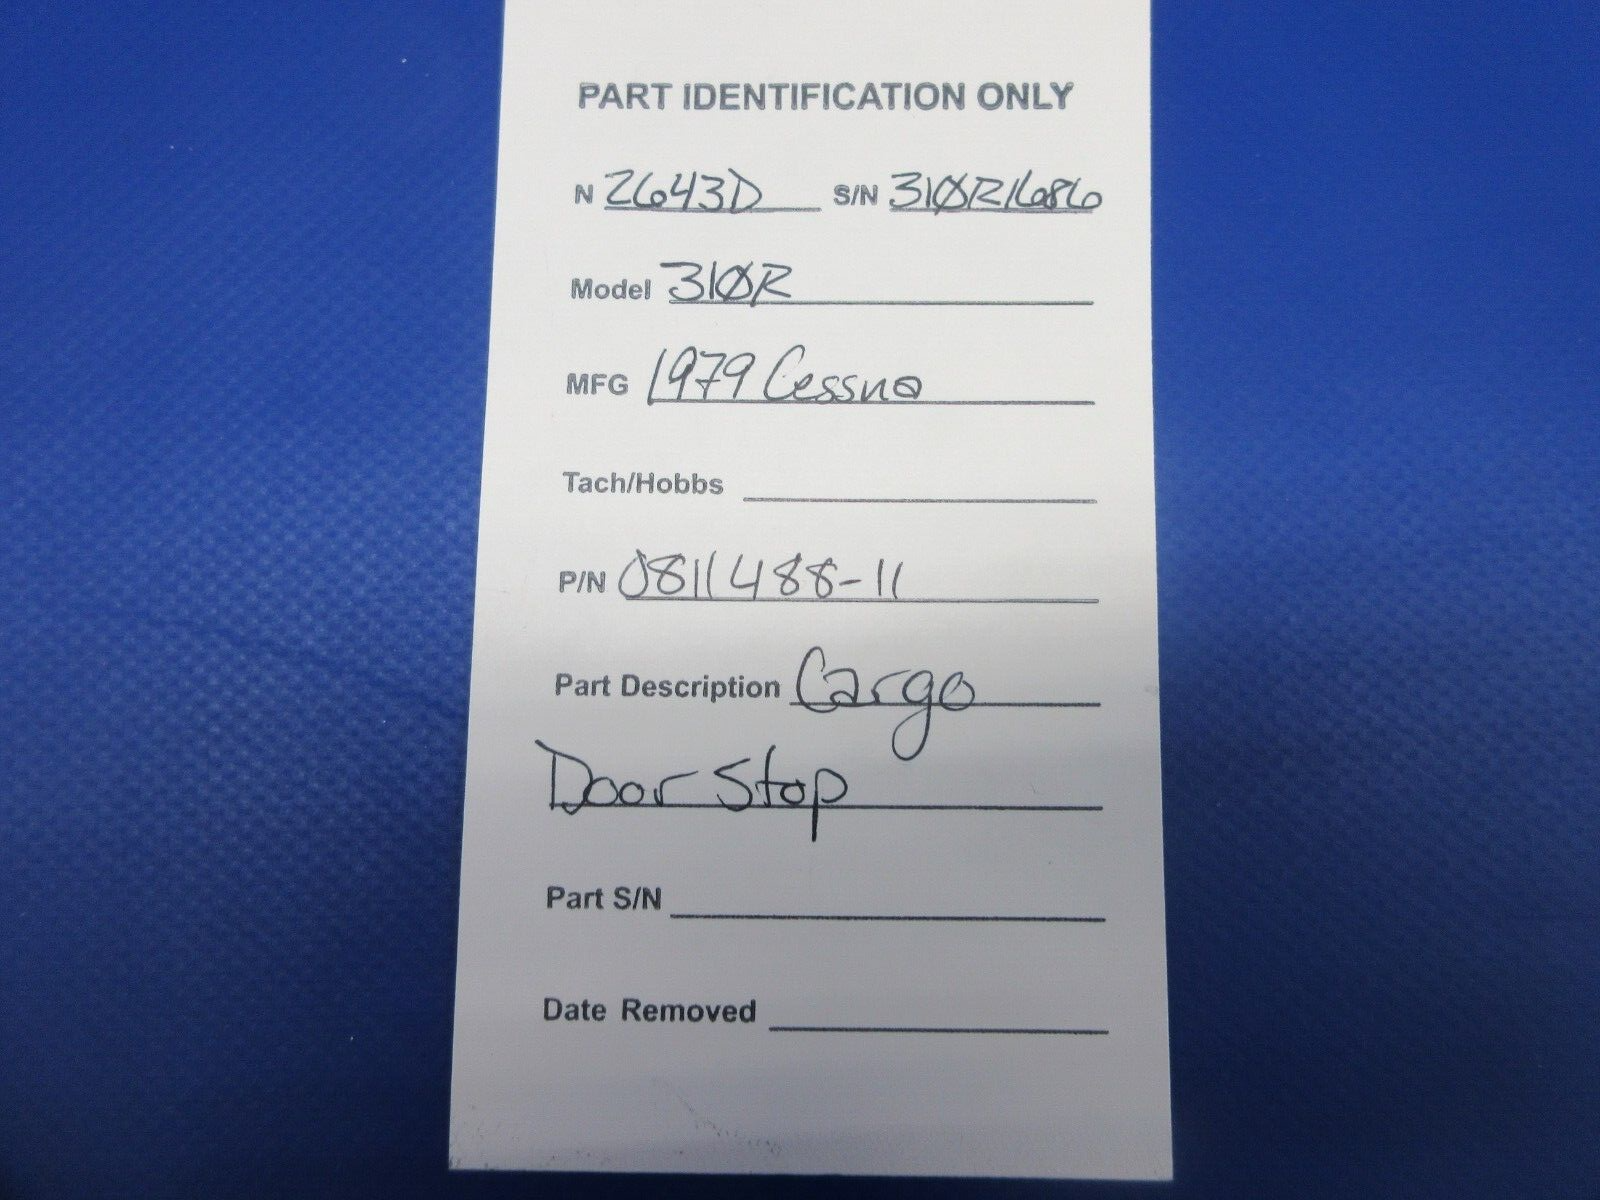 PART IDENTIFICATION ONLY
N 2643D S/N 310R1686
Model 310R
MFG 1979 Cessna
Tach/Hobbs
P/N 0811488-11
Part Description Cargo
Door Stop
Part S/N
Date Removed